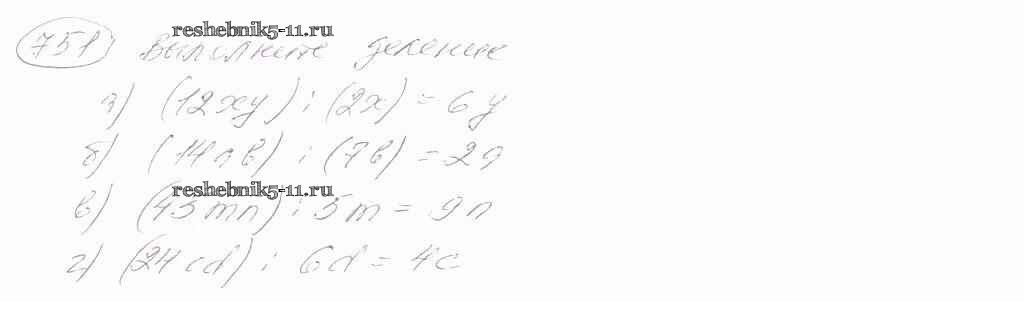 reshebnik5-11.ru
751) Выполните деление
а) (12xy) : (2x) = 6y
б) (14ab) : (7b) = 2a
reshebnik5-11.ru
в) (45mn) : 5m = 9n
г) (24cd) : 6d = 4c